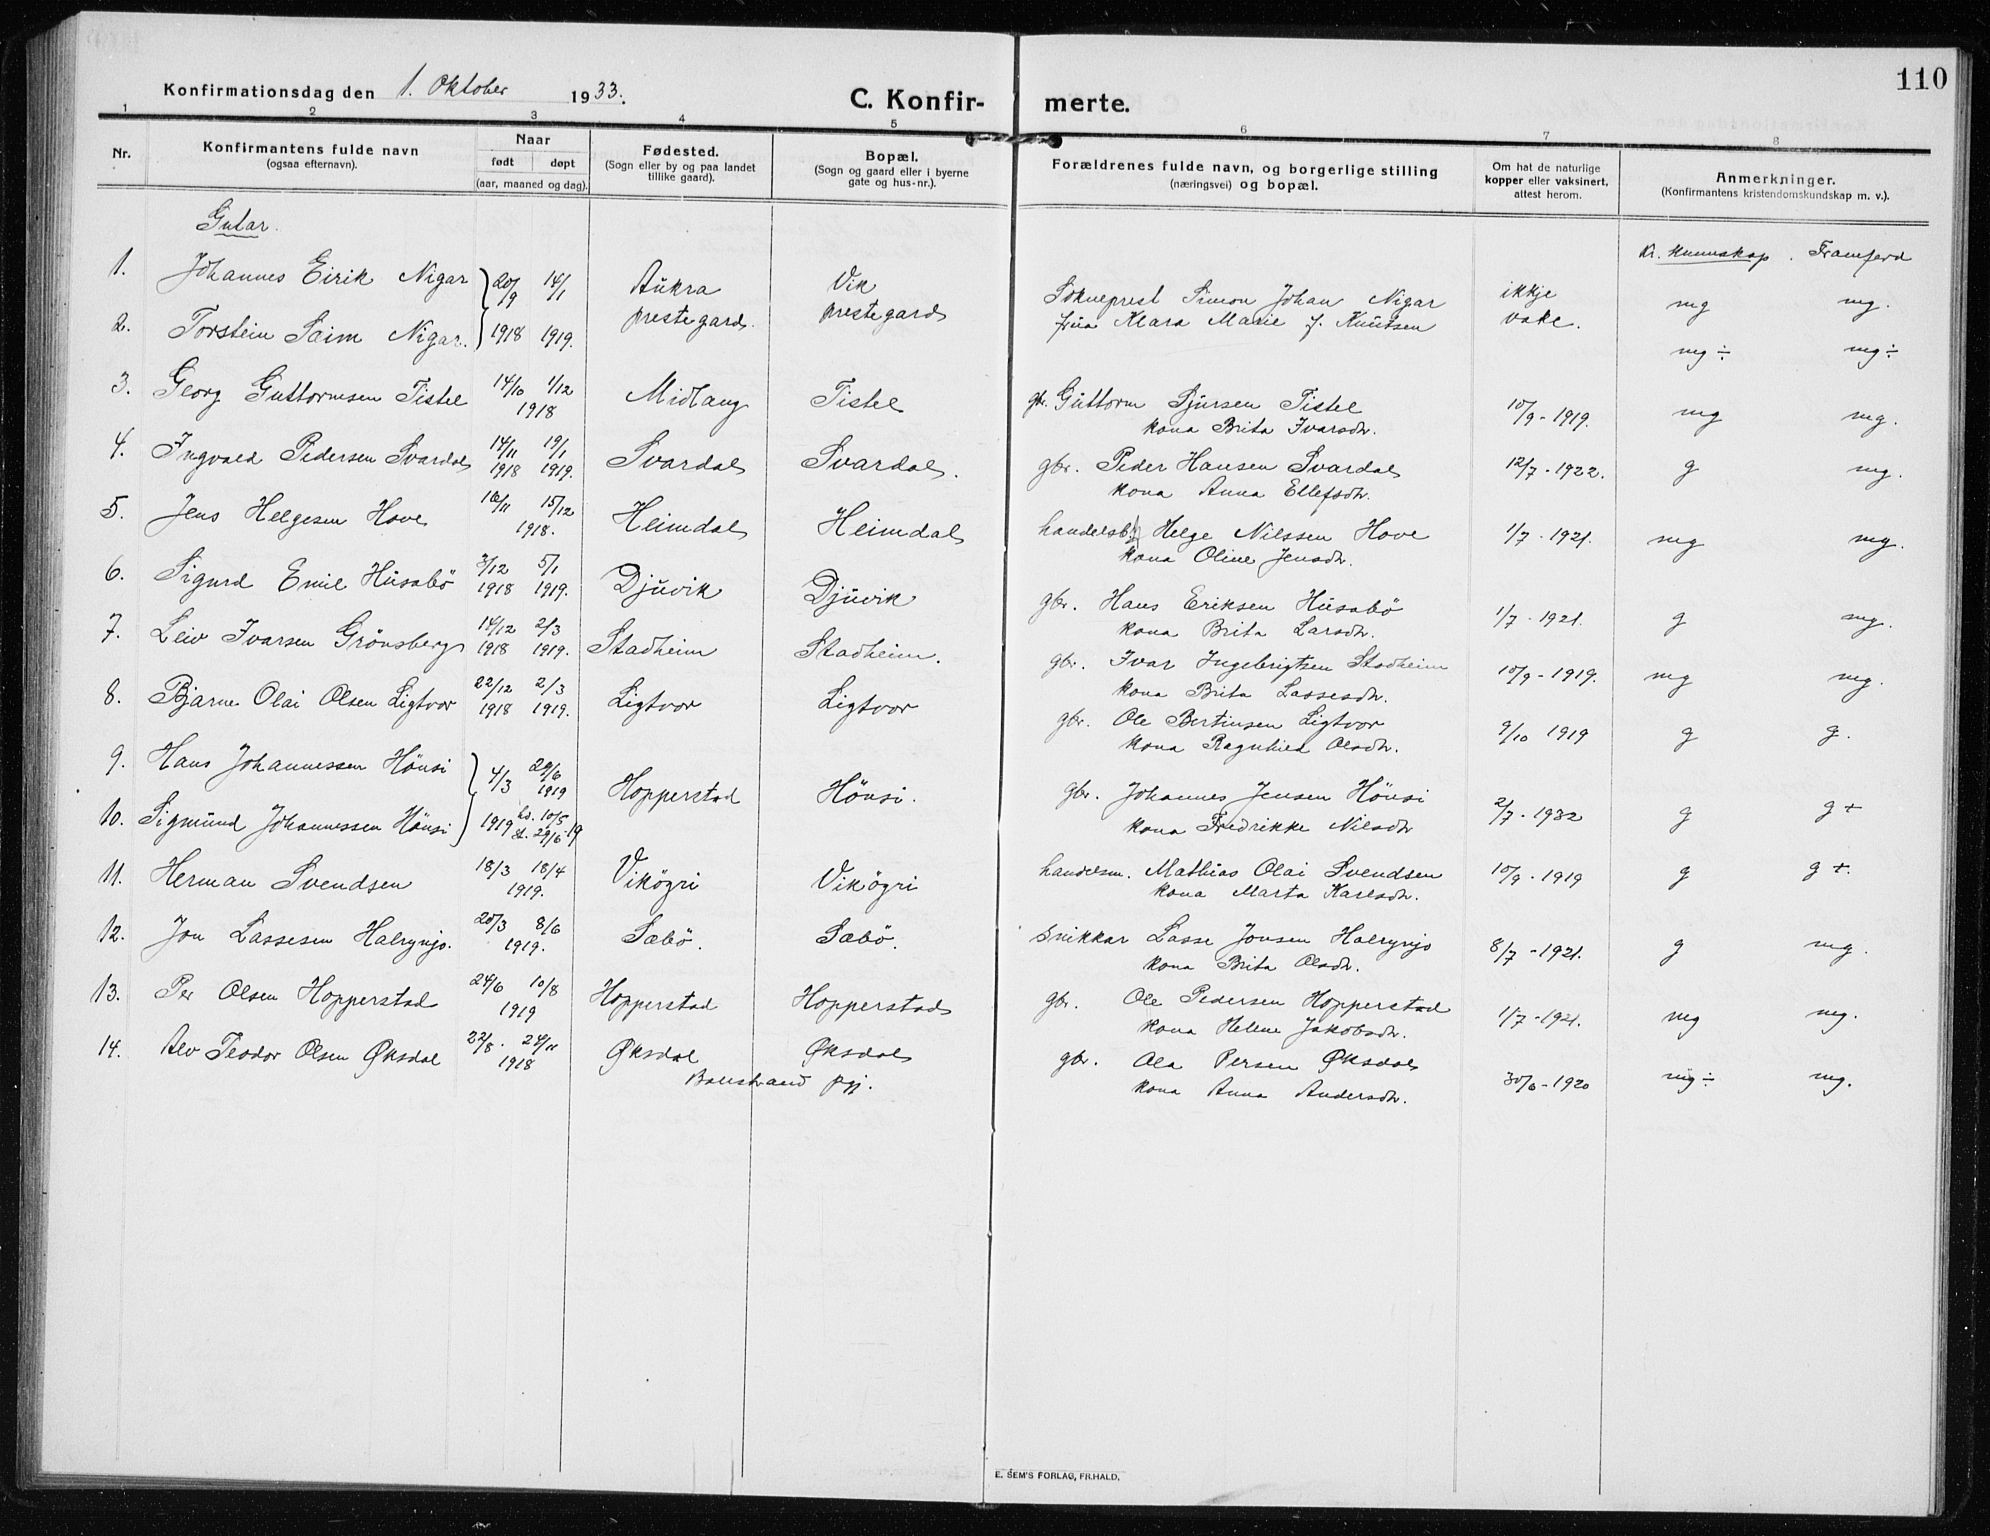 110
Konfirmationsdag den 1. Oktober 1933.
C. Konfir- merte.
1 2 3 4 5 6 7 8
Nr. Konfirmantens fulde navn (ogsaa efternavn). Naar født døpt (aar, maaned og dag). Fødested. (Sogn eller by og paa landet tillike gaard). Bopæl. (Sogn og gaard eller i byerne gate og hus-nr.). Forældrenes fulde navn, og borgerlige stilling (næringsvei) og bopæl. Om hat de naturlige kopper eller vaksinert, attest herom. Anmerkninger. (Konfirmantens kristendomskundskap m. v.).
Gutar.
Kr. kunnskap. Framferd
1. Johannes Eirik Nigar 20/9 14/1 Aukra Vik Sokneprest Simon Johan Nigar ikkje mg mg.
2. Torstein Saim Nigar. 1918 1919. prestegard. prestegard frua Klara Marie f. Knutsen vake. mg ÷ mg ÷
3. Georg Guttormsen Tistel 14/10 1/12 Midlang Tistel gbr. Guttorm Sjursen Tistel 10/9 - 1919. mg mg.
1918 kona Brita Ivarsdtr.
4. Ingvald Pedersen Svardal 14/11 19/1 Svardal Svardal. gbr. Peder Hansen Svardal 12/7 - 1922. g mg.
1918 1919. kona Anna Ellefsdtr.
5. Jens Helgesen Hove 16/11 15/12 Heimdal Heimdal handelsb. Helge Nilssen Hove 1/7 - 1921. mg mg.
1918. kona Oline Jensdtr.
6. Sigurd Emil Husabö 3/12 5/1 Djuvik Djuvik gbr. Hans Eriksen Husabö 1/7 - 1921. g mg.
1918 1919. kona Brita Larsdtr.
7. Leiv Ivarsen Grönsberg 14/12 2/3 Stadheim Stadheim. gbr. Ivar Ingebrigtsen Stadheim 10/9 - 1919. mg mg.
1918 1919. kona Brita Lassesdtr.
8. Bjarne Olai Olsen Ligtvor 22/12 2/3 Ligtvor Ligtvor gbr. Ole Bertinsen Ligtvor 9/10 1919 g g.
1918 1919. kona Ragnhild Olsdtr.
9. Hans Johannessen Hönsi 4/3 29/6 1919 Hopperstad Hönsi. gbr. Johannes Jensen Hönsi 2/7 - 1932 g g +
10. Sigmund Johannessen Hönsi 1919 hd. 10/5 st. 29/6-19 kona Fredrikke Nilsdtr
11. Herman Svendsen 18/3 18/4 Vikögri Vikögri handelsm. Mathias Olai Svendsen 10/9 - 1919 g g +.
1919. kona Marta Karlsdtr.
12. Jon Lassesen Halrynjo. 20/3 8/6 Sæbö. Sæbö. Snikkar Lasse Jonsen Halrynjo 8/7 - 1921. g mg.
1919. kona Brita Olsdtr.
13. Per Olsen Hopperstad 24/6 10/8 Hopperstad Hopperstad gbr. Ole Pedersen Hopperstad 1/7 - 1921. mg mg.
1919 kona Helene Jakobsdtr.
14. Alv Teodor Olsen Øksdal 22/8. 24/11 Øksdal Øksdal gbr. Ola Persen Øksdal 30/6 - 1920 mg ÷ mg.
1918 Balestrand pgj. kona Anna Andersdtr.
E. SEM'S FORLAG, FR.HALD.